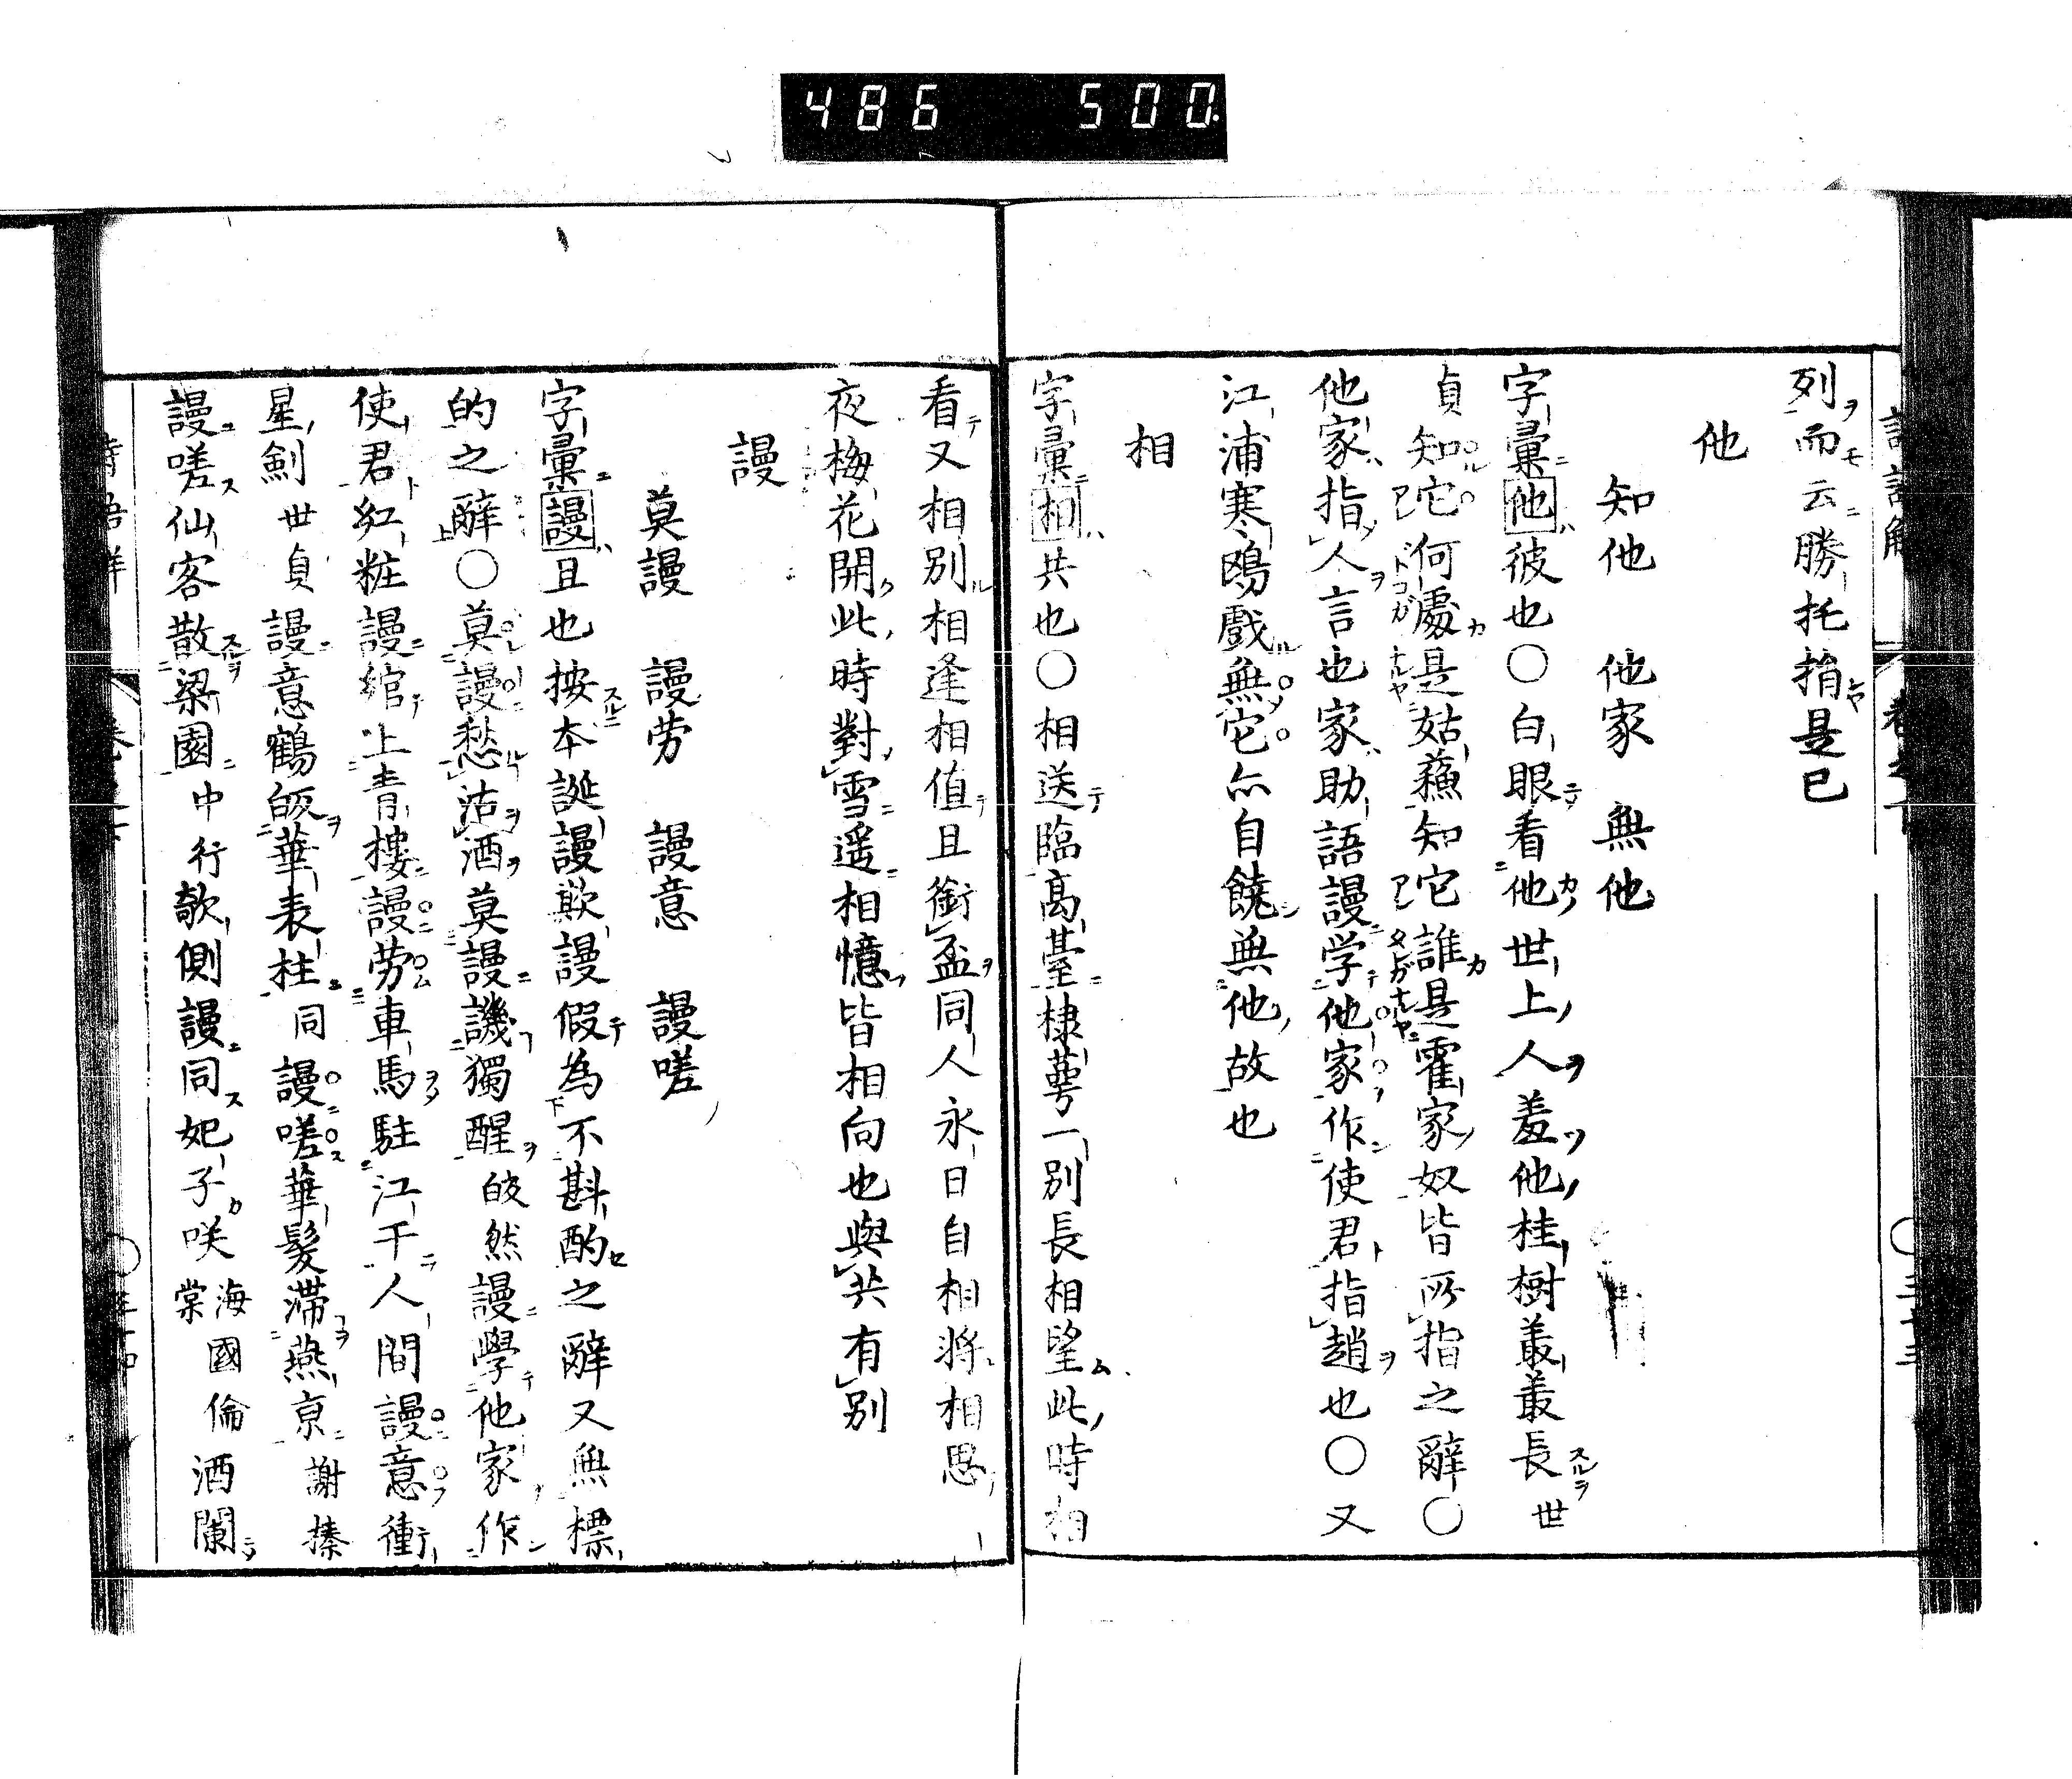 486 500.
列而云勝托捎是已
他
知他 他家 無他
字彙他彼也〇白眼看他世上人羞他桂樹叢叢長世
貞知它何處是姑蘓知它誰是霍家奴皆所指之辭〇
他家指人言也家助語謾学他家作使君指趙也〇又
江浦寒鴎戲無它亦自饒無他故也
相
字彙相共也〇相送臨高臺棣萼一別長相望此時相
看又相別相逢相值且銜盃同人永日自相將相思
夜梅花開此時對雪遥相憶皆相向也與共有別
謾
莫謾 謾劳 謾意 謾嗟
字彙謾且也按本誕謾欺謾假為不斟酌之辭又無標
的之辭〇莫謾愁沽酒莫謾譏獨醒皎然謾學他家作
使君紅粧謾綰上青樓謾劳車馬駐江干人間謾意衝
星劍世貞謾意鶴皈華表柱同謾嗟華髪滯燕京謝榛
謾嗟仙客散梁園中行欹側謾同妃子咲海棠國倫酒闌